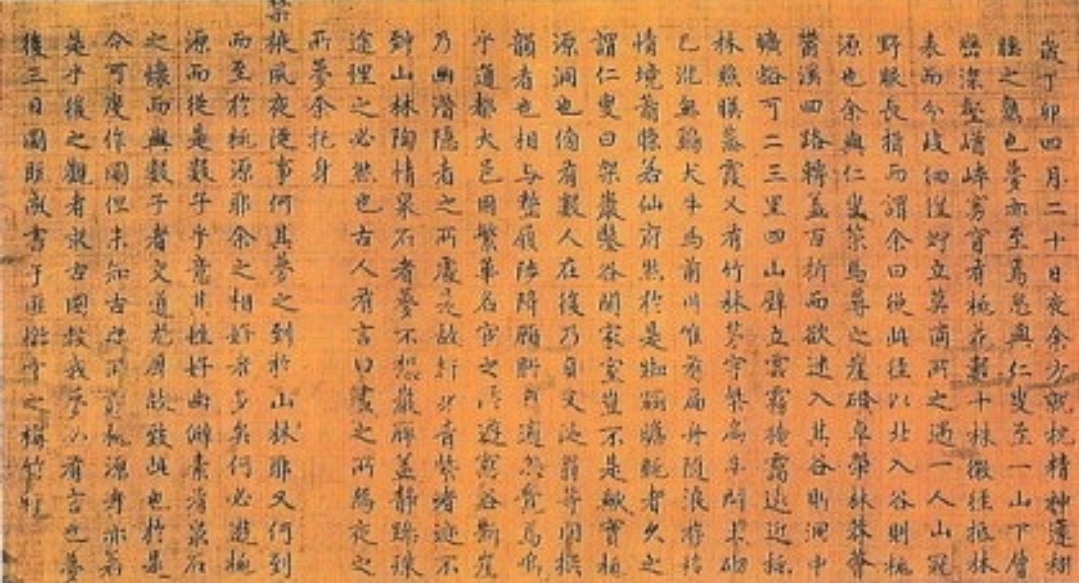 歲丁卯四月二十日夜余方就枕精神蘧栩
睡之熟也夢亦至焉忽與仁叟至一山下層
巒深壑崷崒窈窅有桃花數十株微徑抵林
表而分歧細徑竚立莫適所之遇一人山冠
野服長揖而謂余曰從此徑以北入谷則桃
源也余與仁叟策馬尋之崖磴卓犖林莽薈
鬱溪回路轉蓋百折而欲迷入其谷則洞中
曠豁可二三里四山壁立雲霧掩靄遠近桃
林照暎蒸霞又有竹林茅宇柴扃半開土砌
已沈無鷄犬牛馬前川唯有扁舟隨浪游移
情境蕭條若仙府然於是踟躕瞻眺者久之
謂仁叟曰架巖鑿谷開家室豈不是歟實桃
源洞也傍有數人在後乃貞父泛翁等同撰
韻者也相與整履陟降顧眄自適忽覺焉嗚
乎通都大邑固繁華名宦之所遊窮谷斷崖
乃幽潛隱者之所處是故紆青紫者迹不
到山林陶情泉石者夢不想巖廊蓋靜躁殊
途理之必然也古人有言曰晝之所爲夜之
所夢余托身
禁掖夙夜從事何其夢之到於山林耶又何到
而至於桃源耶余之相好者多矣何必遊桃
源而從是數子乎意其性好幽僻素有泉石
之懷而與數子者交道尤厚故致此也於是
令可度作圖但未知古之所謂桃源者亦若
是乎後之觀者求古圖較我夢必有言也夢
後三日圖旣成書于匪懈堂之梅竹軒